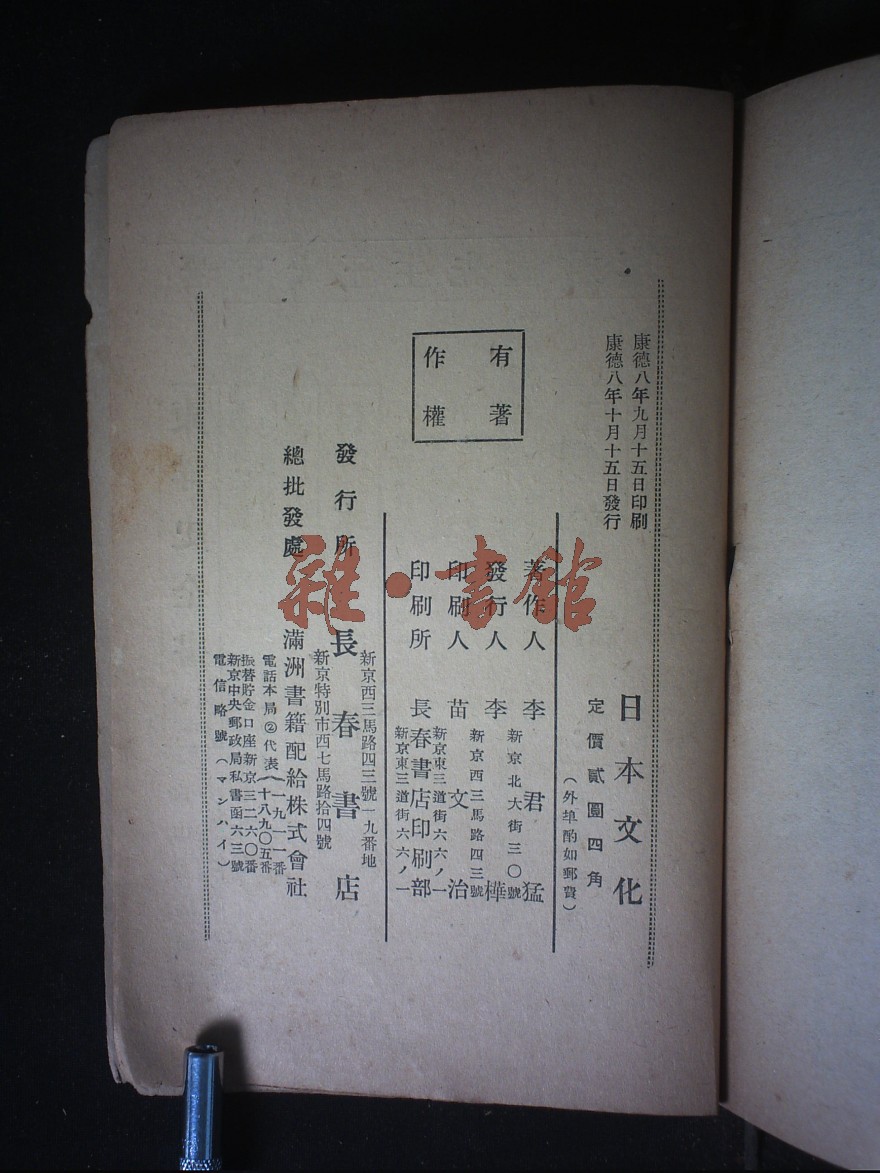 康德八年九月十五日印刷
康德八年十月十五日發行
日本文化
定價貳圓四角
（外埠酌加郵費）
有著
作權
著作人 李君猛
新京北大街三〇號
發行人 李樺
新京西三馬路四三號
印刷人 苗文治
新京東三道街六六ノ一
印刷所 長春書店印刷部
新京東三道街六六ノ一
新京西三馬路四三號一九番地
發行所 長春書店
新京特別市西七馬路拾四號
總批發處 滿洲書籍配給株式會社
電話本局②代表（一九一一番
十八九〇五番
振替貯金口座新京三二六〇番
新京中央郵政局私書函六三號
電信略號（マンハイ）
雜·書館